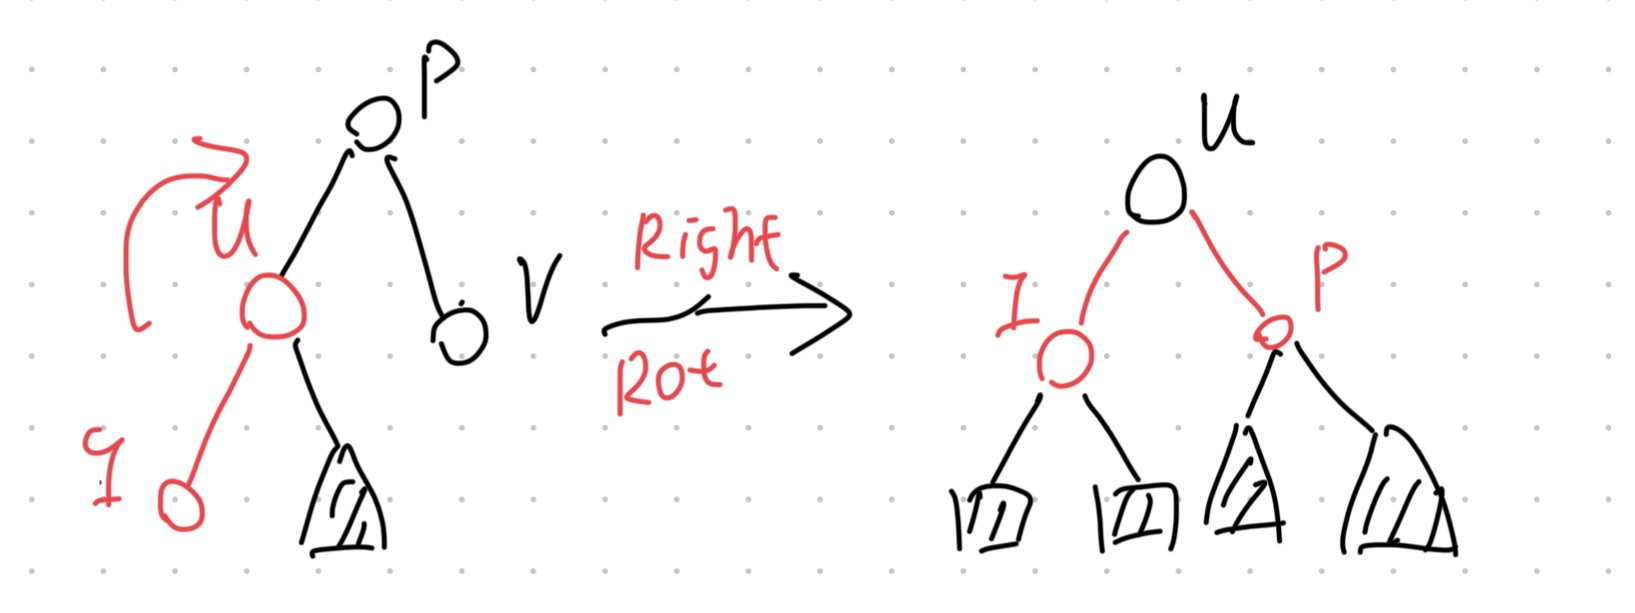 P
U
V
I
Right
Rot
U
I
P